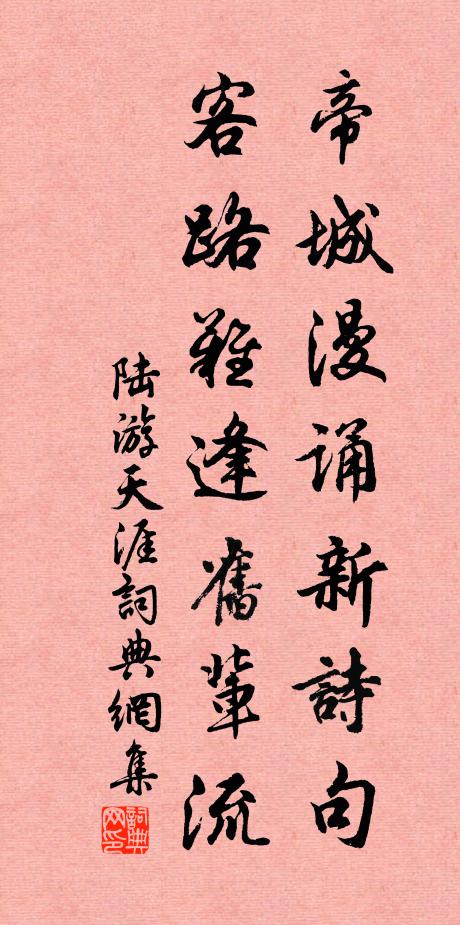 帝城漫誦新詩句
客路難逢舊輩流
陸游天涯詞典網集
詞典网印